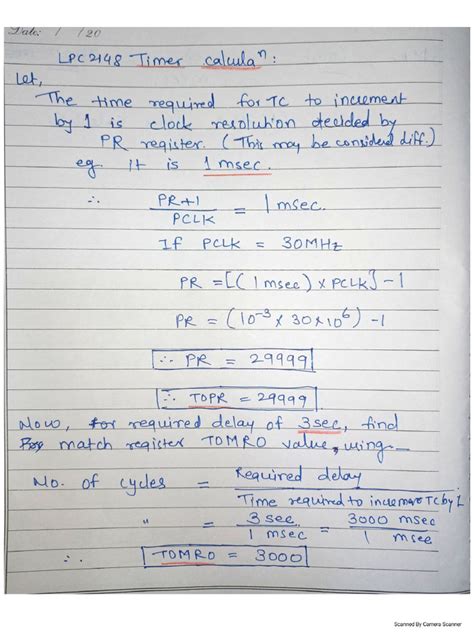 Date: / /20
LPC2148 Timer calculaⁿ:
Let,
The time required for TC to increment
by 1 is clock resolution decided by
PR register. (This may be considerd diff.)
eg it is 1 msec.
∴ PR+1 / PCLK = 1 msec.
If PCLK = 30MHz
PR = [(1 msec) x PCLK] - 1
PR = (10⁻³ x 30 x 10⁶) - 1
∴ PR = 29999
∴ T0PR = 29999
Now, for required delay of 3sec, find
match register T0MR0 value, using -
No. of cycles = Required delay / Time required to increment TC by 1
" = 3 sec / 1 msec = 3000 msec / 1 msec
∴ T0MR0 = 3000
Scanned By Camera Scanner